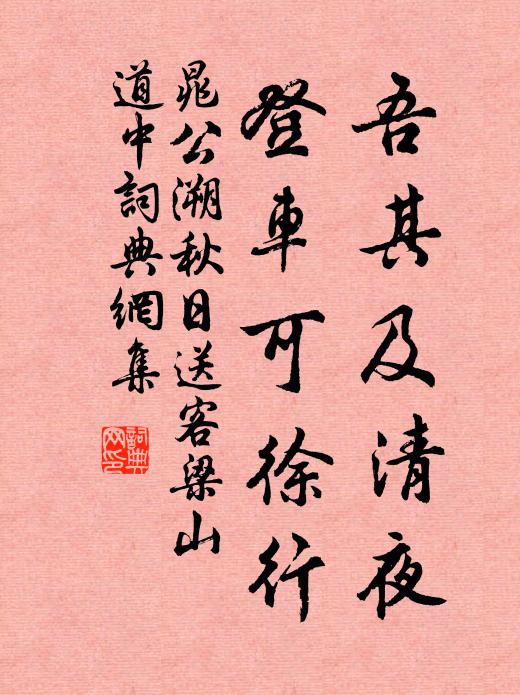 吾其及清夜
登車可徐行
晁公溯秋日送客梁山
道中詞典網集
詞典
网印